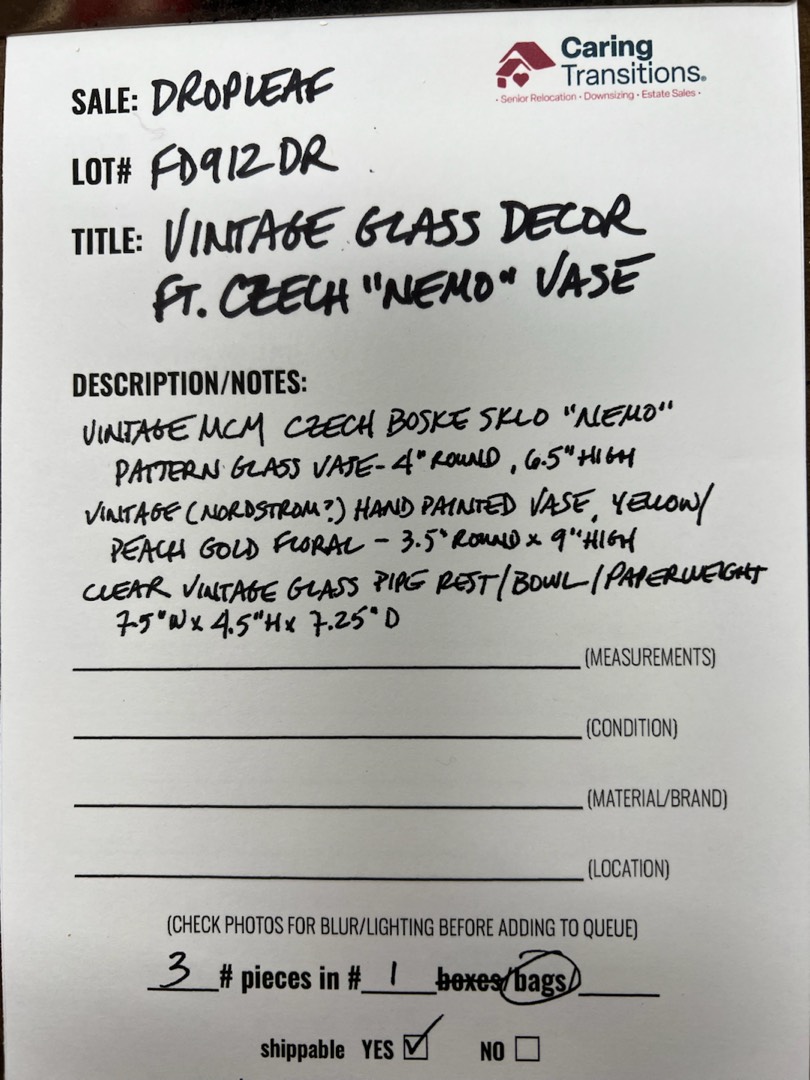 Caring
Transitions.
• Senior Relocation • Downsizing • Estate Sales •
SALE: DROPLEAF
LOT# FD912DR
TITLE: VINTAGE GLASS DECOR
FT. CZECH "NEMO" VASE
DESCRIPTION/NOTES:
VINTAGE MCM CZECH BOSKE SKLO "NEMO"
PATTERN GLASS VASE- 4" ROUND, 6.5" HIGH
VINTAGE (NORDSTROM?) HAND PAINTED VASE, YELLOW/
PEACH GOLD FLORAL - 3.5" ROUND x 9" HIGH
CLEAR VINTAGE GLASS PIPE REST/BOWL/PAPERWEIGHT
7.5"W x 4.5"H x 7.25" D
(MEASUREMENTS)
(CONDITION)
(MATERIAL/BRAND)
(LOCATION)
(CHECK PHOTOS FOR BLUR/LIGHTING BEFORE ADDING TO QUEUE)
3 # pieces in # 1 boxes/bags/
shippable YES ☑ NO ☐